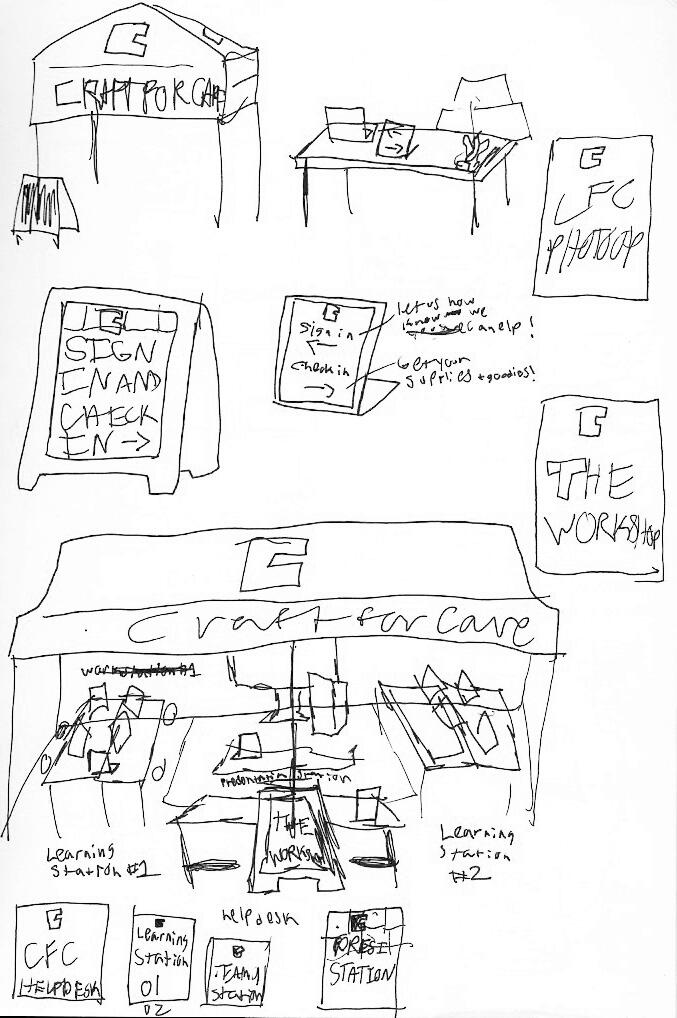 CRAFT FOR CARE
CFC
PHOTOOP
SIGN
IN AND
CHECK
IN →
Sign in
←
Check in
→
Let us now
know we
can help!
Get your
supplies + goodies!
THE
WORKSHOP
Craft for care
workstation #1
Presentation station
THE
WORKSHOP
Learning
Station #1
Learning
Station
#2
Helpdesk
CFC
HELPDESK
Learning
Station
01
02
Station
STATION